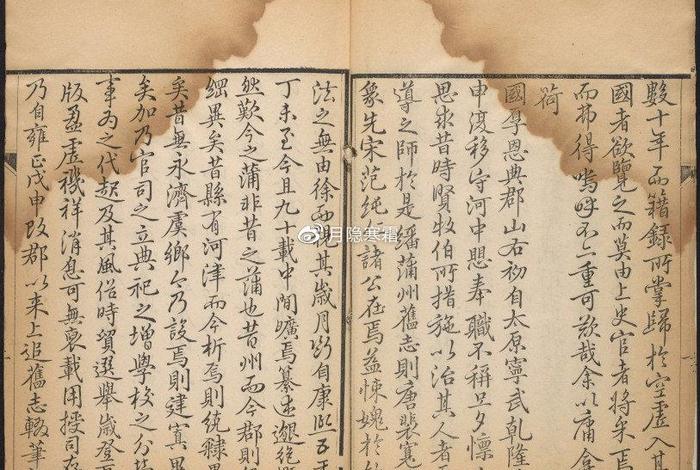 數十年而籍錄所掌歸於空虛入其
國者欲覽之而莫由上史官者將
而弗得嗚呼不亦重可欬哉余以庸
荷
國厚恩典郡山右初自太原寧武乾隆
申復移守河中思奉職不稱旦夕懍
思求昔時賢牧伯所措施以治其人者
導之師於是繙蒲州舊志則唐裴寬
象先宋范純仁諸公在焉益悚媿於
法之無由徐而稽其歲月則自康熙五
丁未至今且九十載中間曠焉纂述邈絕
然歎今之蒲非昔之蒲也昔州而今郡則
綱異矣昔縣有河津而今析焉則統隸異
矣昔無永濟虞鄉今乃設焉則建寘異
矣加乃官司之立典祀之增學校之分
事為之代起及其風俗時貿選舉歲登
版盈虛禨祥消息可無裒載用授司
乃自雍正戊申改郡以來上追舊志輟筆
@月隐寒霜